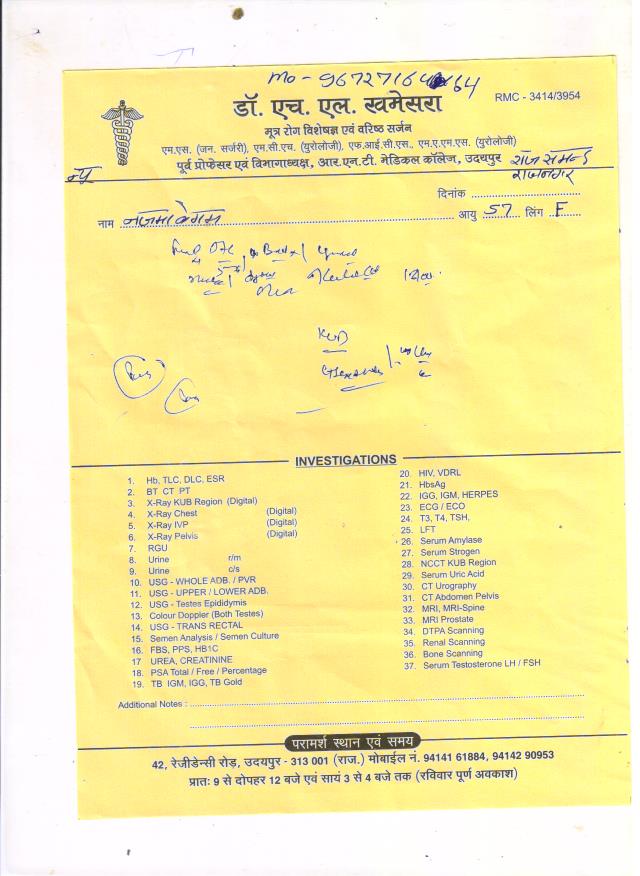 Mo - 9672716464
डॉ. एच. एल. खमेसरा
RMC - 3414/3954
मूत्र रोग विशेषज्ञ एवं वरिष्ठ सर्जन
एम.एस. (जन. सर्जरी), एम.सी.एच. (युरोलोजी), एफ.आई.सी.एस., एम.ए.एम.एस. (युरोलोजी)
पूर्व प्रोफेसर एवं विभागाध्यक्ष, आर.एन.टी. मेडिकल कॉलेज, उदयपुर
राजसमन्द
राजनगर
न्यू
दिनांक
नाम नजमा बेगम आयु 57 लिंग F
KUB
INVESTIGATIONS
1. Hb, TLC, DLC, ESR
2. BT CT PT
3. X-Ray KUB Region (Digital)
4. X-Ray Chest (Digital)
5. X-Ray IVP (Digital)
6. X-Ray Pelvis (Digital)
7. RGU
8. Urine r/m
9. Urine c/s
10. USG - WHOLE ADB. / PVR
11. USG - UPPER / LOWER ADB.
12. USG - Testes Epididymis
13. Colour Doppler (Both Testes)
14. USG - TRANS RECTAL
15. Semen Analysis / Semen Culture
16. FBS, PPS, HB1C
17 UREA, CREATININE
18. PSA Total / Free / Percentage
19. TB IGM, IGG, TB Gold
20. HIV, VDRL
21. HbsAg
22. IGG, IGM, HERPES
23. ECG / ECO
24. T3, T4, TSH,
25. LFT
26. Serum Amylase
27. Serum Strogen
28. NCCT KUB Region
29. Serum Uric Acid
30. CT Urography
31. CT Abdomen Pelvis
32. MRI, MRI-Spine
33. MRI Prostate
34. DTPA Scanning
35. Renal Scanning
36. Bone Scanning
37. Serum Testosterone LH / FSH
Additional Notes :
परामर्श स्थान एवं समय
42, रेजीडेन्सी रोड़, उदयपुर - 313 001 (राज.) मोबाईल नं. 94141 61884, 94142 90953
प्रातः 9 से दोपहर 12 बजे एवं सायं 3 से 4 बजे तक (रविवार पूर्ण अवकाश)